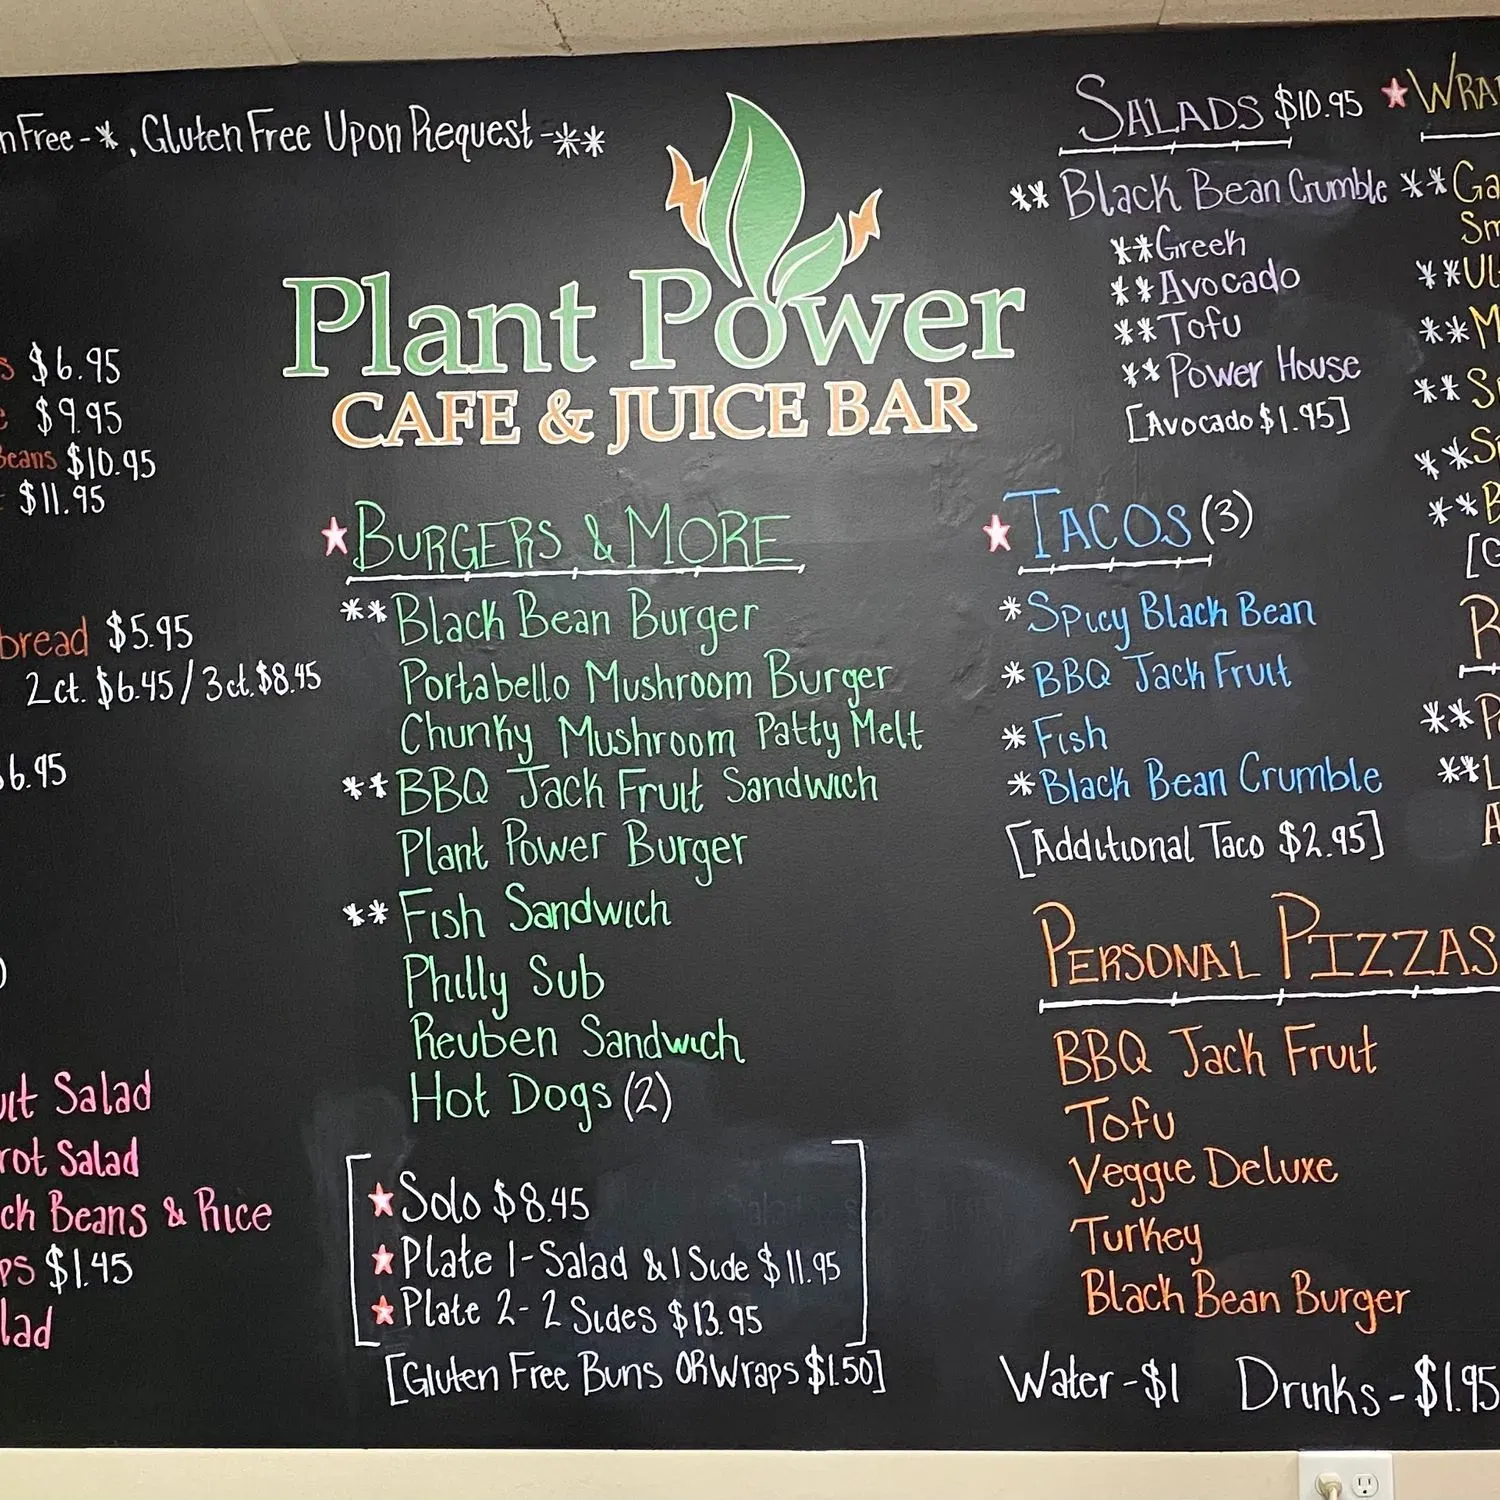 Free - *, Gluten Free Upon Request - **
$6.95
$9.95
Beans $10.95
$11.95
bread $5.95
2ct. $6.45 / 3ct. $8.45
$6.95
Salad
Salad
Beans & Rice
$1.45
Plant Power
CAFE & JUICE BAR
BURGERS & MORE
** Black Bean Burger
Portabello Mushroom Burger
Chunky Mushroom Patty Melt
** BBQ Jack Fruit Sandwich
Plant Power Burger
** Fish Sandwich
Philly Sub
Reuben Sandwich
Hot Dogs (2)
Solo $8.45
Plate 1 - Salad & 1 Side $11.95
Plate 2 - 2 Sides $13.95
[Gluten Free Buns OR Wraps $1.50]
SALADS $10.95
** Black Bean Crumble
** Greek
** Avocado
** Tofu
** Power House
[Avocado $1.95]
TACOS (3)
* Spicy Black Bean
* BBQ Jack Fruit
* Fish
* Black Bean Crumble
[Additional Taco $2.95]
PERSONAL PIZZAS
BBQ Jack Fruit
Tofu
Veggie Deluxe
Turkey
Black Bean Burger
Water - $1 Drinks - $1.95